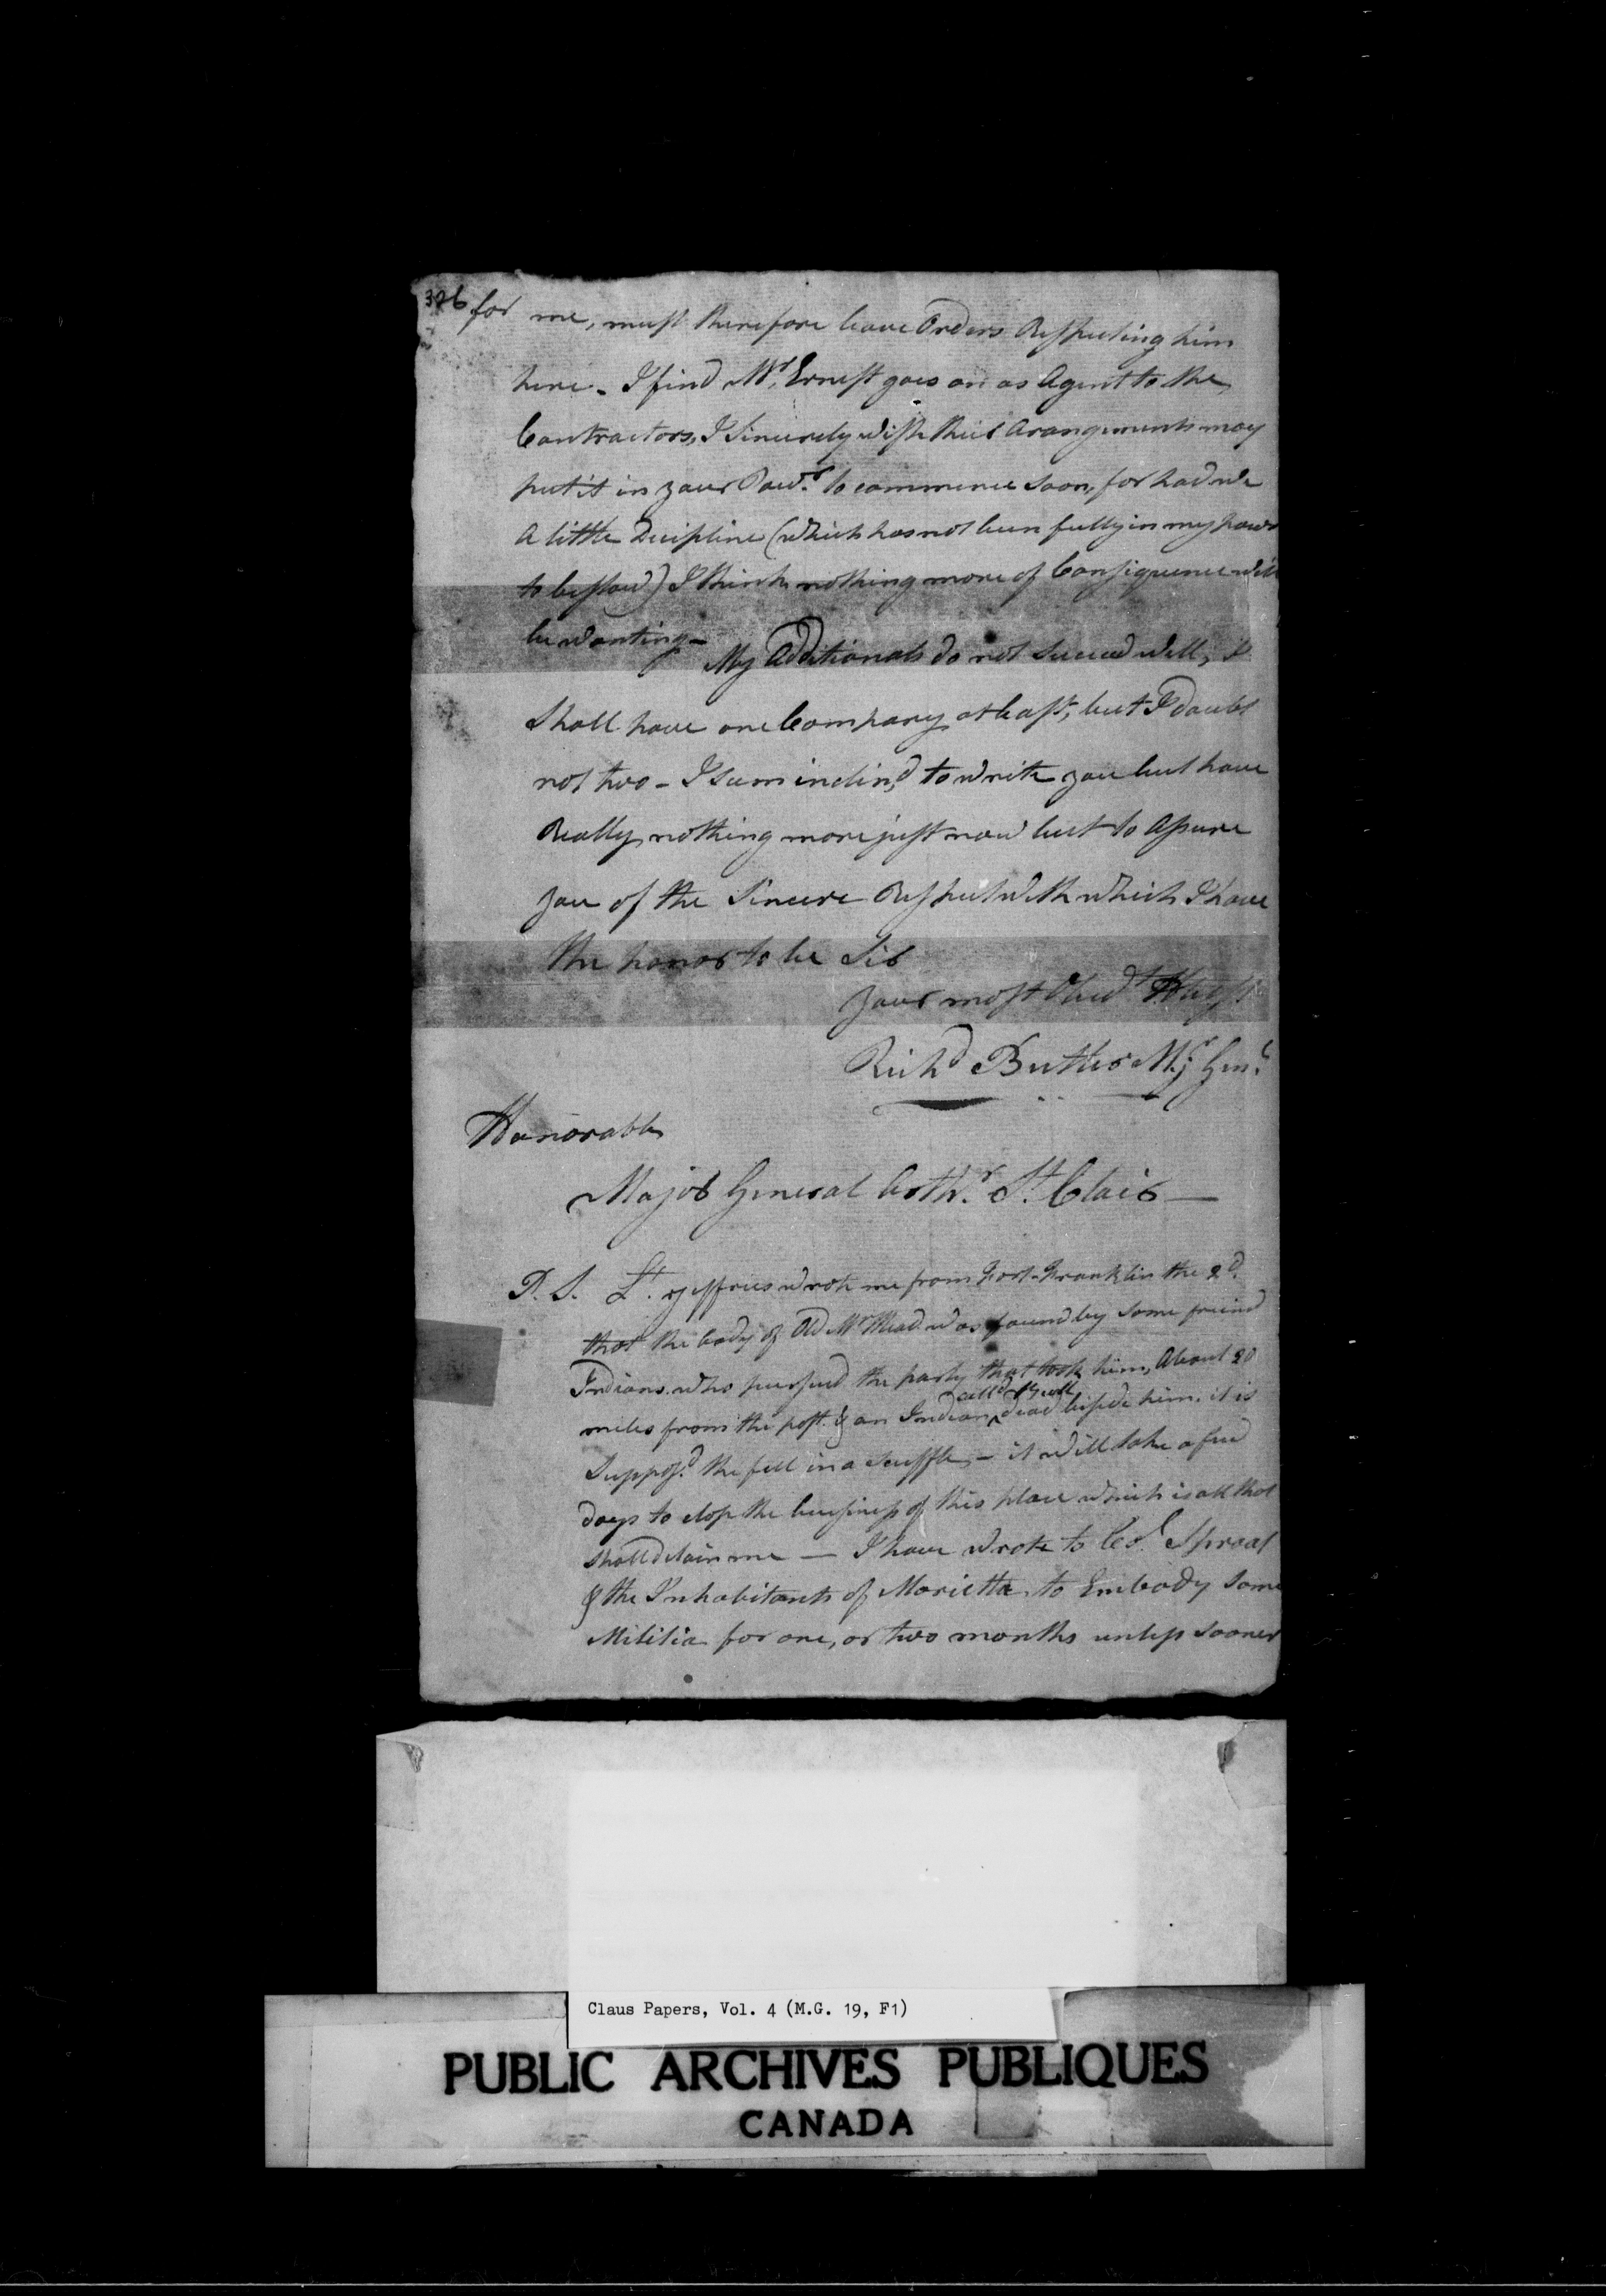 326
for me, must therefore leave Orders Respecting him
here - I find Mr. Ernest goes on as Agent to the
Contractors, I Sincerely wish their Arangements may
put it in your Powr. to commence Soon, for had we
a little Decipline (which has not been fully in my power
to bestow) I think nothing more of Consiquence will
be wanting -
My Additionals do not Succeed well, I
Shall have one Company at least, but I doubt
not two - I seem inclin'd to write you but have
Really nothing more just now but to Assure
you of the Sincere Respect with which I have
the honor to be Sir
your most Obedt.
Richd Butler Mjr Genl.
Honorable
Major General Arthr. St. Clair —
P.S. Lt. Jeffries wrote me from Fort-Franklin the 2d.
that the body of Old Mr Mead was found by Some friend
Indians who pursued the party that took him, About 20
calld
miles from the post & an Indian ^ dead beside him. it is
Suppos'd the fell in a Scuffle, - it will take a few
days to close the business of this place which is all that
Shall detain me — I have wrote to Col. Sproat
& the Inhabitants of Marietta to Embody some
Militia for one, or two months unless sooner
Claus Papers, Vol. 4 (M.G. 19, F1)
PUBLIC ARCHIVES PUBLIQUES
CANADA